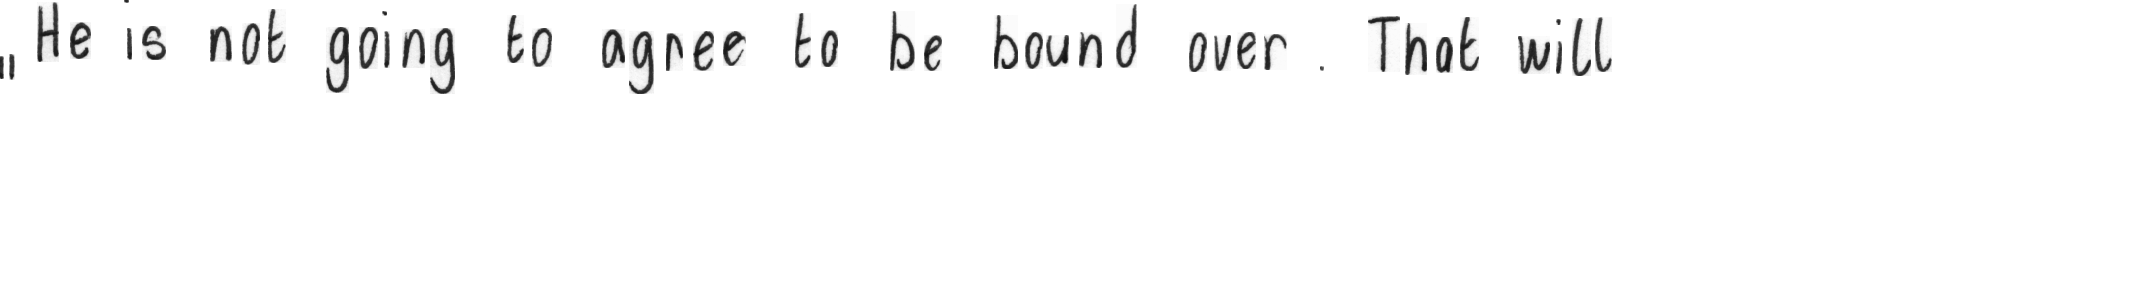 „He is not going to agree to be bound over. That will